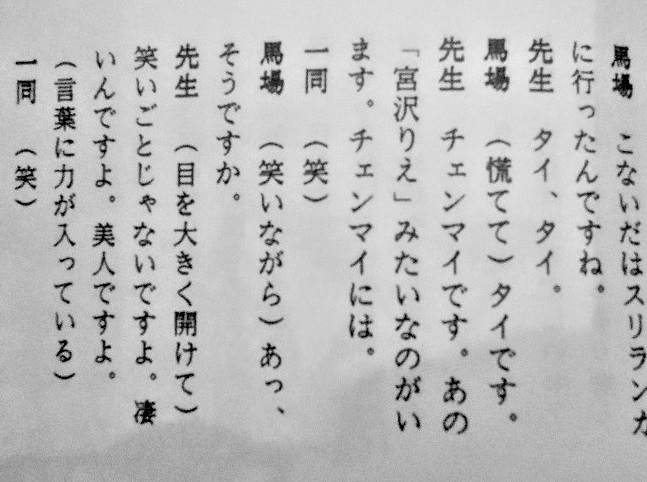 馬場　こないだはスリランカ
に行ったんですね。
先生　タイ、タイ。
馬場　（慌てて）タイです。
先生　チェンマイです。あの
「宮沢りえ」みたいなのがい
ます。チェンマイには。
一同　（笑）
馬場　（笑いながら）あっ、
そうですか。
先生　（目を大きく開けて）
笑いごとじゃないですよ。凄
いんですよ。美人ですよ。
（言葉に力が入っている）
一同　（笑）